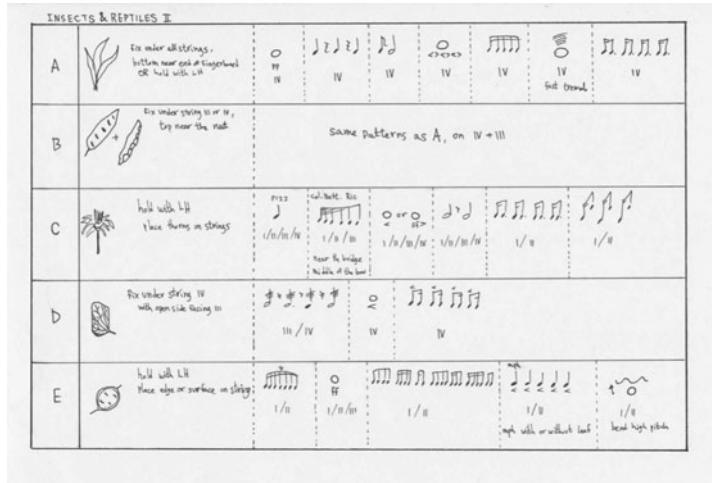 INSECTS & REPTILES II
A
Fix under all strings,
bottom near end of fingerboard
OR hold with LH
ff
IV
IV
IV
IV
IV
IV
fast tremol
IV
B
Fix under string III or IV,
top near the nut
same patterns as A, on IV + III
C
hold with LH
Place thorns on strings
pizz
I/II/III/IV
col.batt. Ric
I/II/III
near the bridge
middle of the bow
or
I/II/III/IV
I/II/III/IV
I/II
I/II
D
Fix under string IV
with open side facing III
III/IV
IV
IV
E
hold with LH
Place edge or surface on strings
I/II
ff
I/II/III
I/II
mph
I/II
mph with or without leaf
I/II
bend high pitch